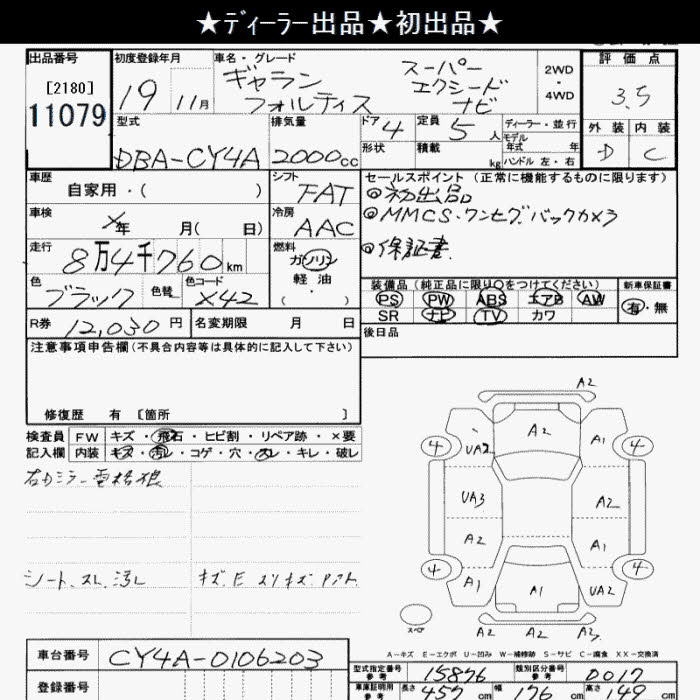 ★ディーラー出品★初出品★
出品番号
[2180]
11079
初度登録年月
19 11月
車名・グレード
ギャラン
フォルティス
スーパー
エクシード
ナビ
2WD
・
4WD
評価点
3.5
外装 内装
D C
型式
DBA-CY4A
排気量
2000cc
ドア 4
形状
定員 5人
積載 kg
ディーラー・並行
モデル
年式 年
ハンドル 左・右
車歴
自家用・( )
シフト
FAT
車検
×年 月( 日)
冷房
AAC
走行
8万4千760km
燃料
ガソリン
軽油
( ・ )
色
ブラック
色替
色コード
X42
R券 12,030円
名変期限 月 日
セールスポイント (正常に機能するものに限ります)
◎初出品
◎MMCS・ワンセグ、バックカメラ
◎保証書
装備品 (純正品に限り○をつけてください)
PS PW ABS エアB AW
SR ナビ TV カワ
新車保証書
有・無
後日品
注意事項申告欄 (不具合内容等は具体的に記入して下さい)
修復歴 有 [箇所 ]
検査員
記入欄
FW キズ・飛石・ヒビ割・リペア跡・×要
内装 キズ・汚レ・コゲ・穴・スレ・キレ・破レ
シート、スレ、汚レ
A2
A2
4
UA2
A1
4
UA3
A2
A2
A1
4
A1
A1
UA2
4
スペア
A2 A2 A2
A-キズ E-エクボ U-凹み W-補修跡 S-サビ C-腐食 XX-交換済
車台番号
CY4A-0106203
登録番号
型式指定番号
参考
15876
類別区分番号
参考
D017
車庫証明用
参考
長さ 457cm
幅 176cm
高さ 149cm